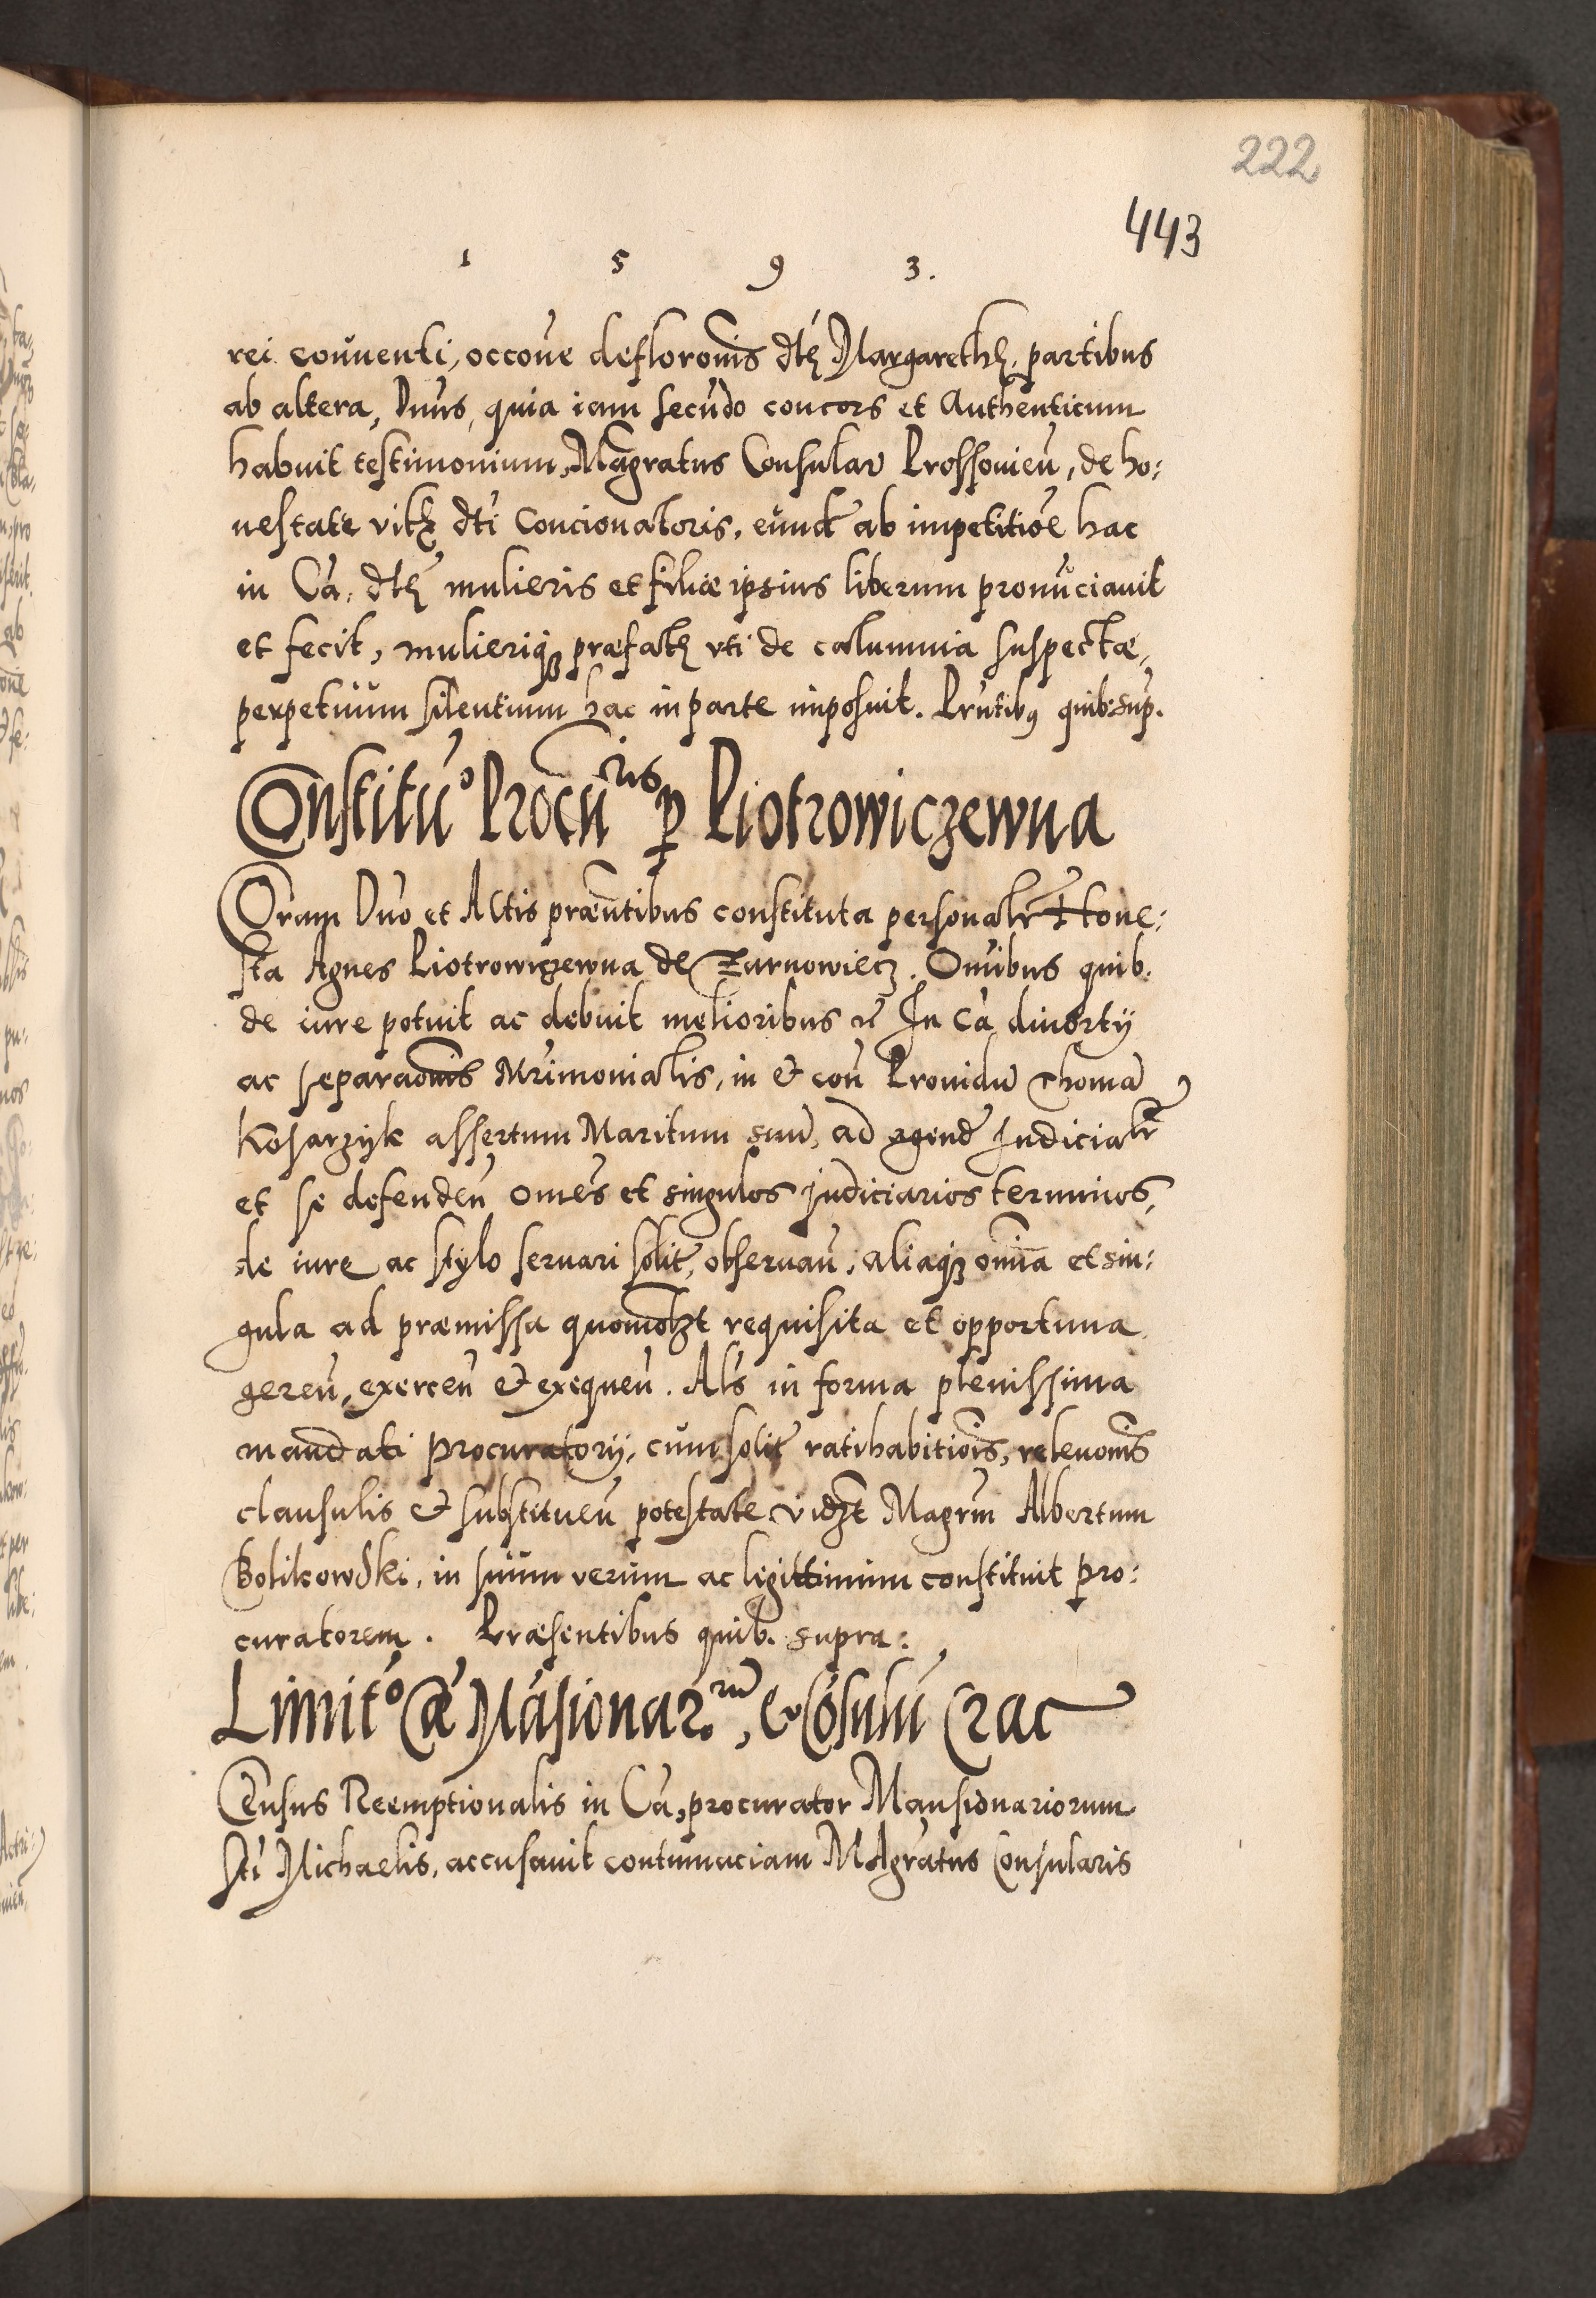 222
443
1 5 9 3.
rei conuenti, occone defloronis dtę Margarethę, partibus
ab altera, Dnus, quia iam secūdo concors et Authenticum
habuit testimonium, Magratus Consular Prossouien̄, de ho:
nestate vitę dti Concionatoris, eund ab impetitiōe hac
in Cā, dtę mulieris et filiæ ipsius liberum pronūciauit
et fecit, mulieriqȝ præfatę vti de calumnia suspectæ,
perpetuum silentium hac in parte imposuit. Prntibꝰ quib: sup.
Constituº Procūris p Piotrowiczewna
Coram Dno et Actis præntibus constituta personalr Hone:
sta Agnes Piotrowiczewna de Zarnowiecz. Omibus quib.
de iure potuit ac debuit melioribus rē In Cā diuortÿ
ac separaonis Mrimonialis, in & con Prouidū Thomā
Kosarzyk assertum Maritum suū, ad agend Judicialr
et se defenden̄ omes et singulos judiciarios terminos,
de iure ac stylo seruari solit, obseruan̄, aliaqȝ omia et sin:
gula ad præmissa quomolȝt requisita et opportuna
geren̄, exercen̄ & exequen̄. Als in forma plenissima
mandati procuratorÿ, cum solit ratihabitiois, releuonis
clausulis & substituen̄ potestate vidȝt Magrm Albertum
Bolikowski, in suum verum ac legittimum constituit pro:
curatorem. Præsentibus quib. supra:
Limitº Cæ Māsionar.rū, & Cōsulū Crac
Census Reemptionalis in Cā, procurator Mansionariorum
Sti Michaelis, accusauit contumaciam MAgratus Consularis